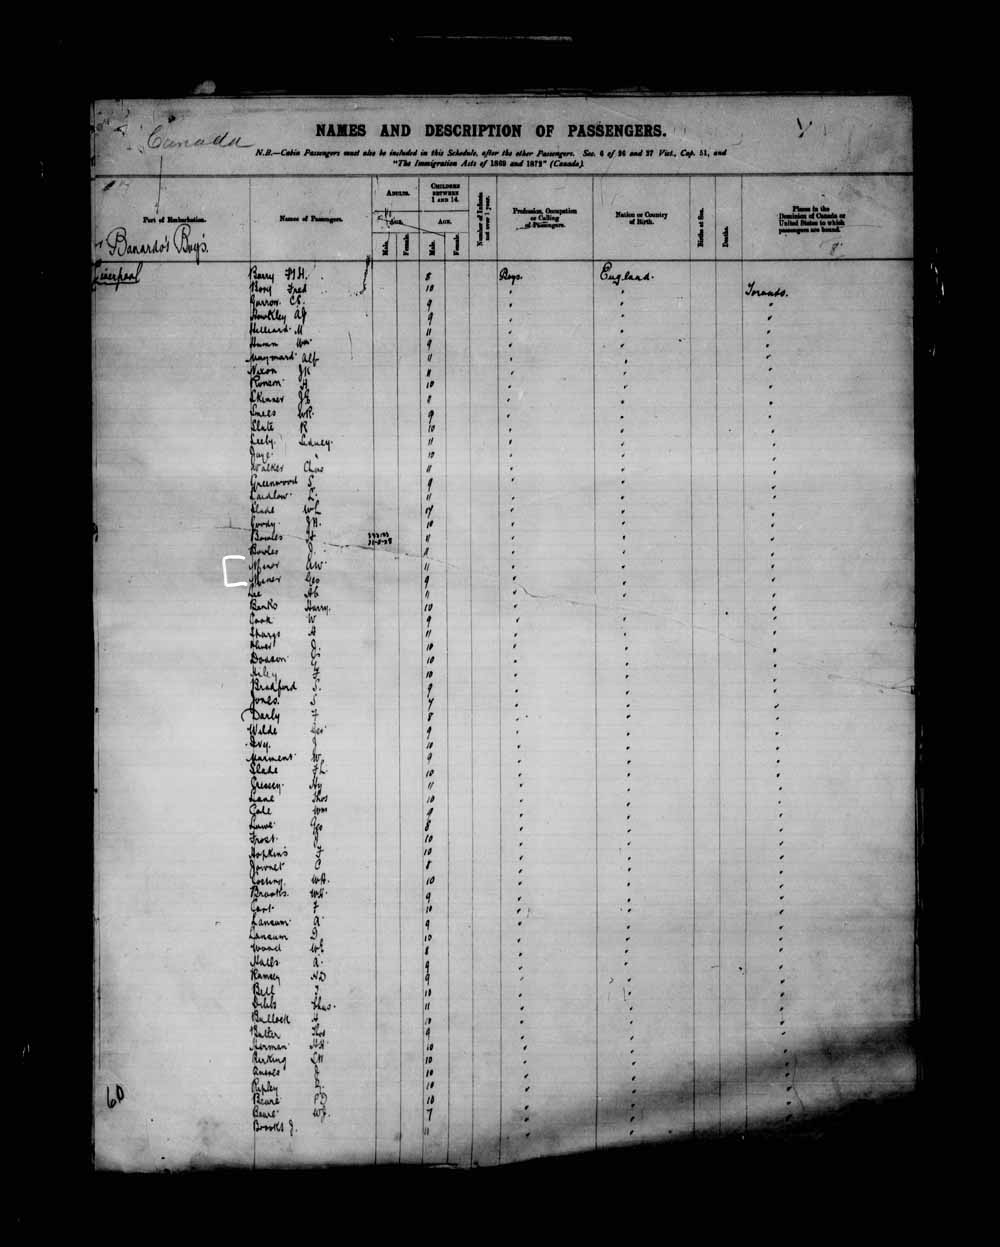 Canada
NAMES AND DESCRIPTION OF PASSENGERS.
N.B.—Cabin Passengers must also be included in this Schedule, after the other Passengers. Sec. 6 of 36 and 37 Vict., Cap. 51, and
"The Immigration Acts of 1869 and 1872" (Canada).
Port of Embarkation. Names of Passengers. ADULTS. AGE. Male. Female. CHILDREN BETWEEN 1 AND 14. AGE. Male. Female. Number of Infants not over 1 year. Profession, Occupation or Calling of Passengers. Nation or Country of Birth. Births at Sea. Deaths. Places in the Dominion of Canada or United States to which passengers are bound.
Banardo's Boys.
Liverpool Barry 8 Boys. England.
Bory Fred 10 " " Toronto.
Garrow C.E. 9 " " "
Hawkley AJ 9 " " "
Hilliard M 11 " " "
Hunn Wm 9 " " "
Maynard Alf 11 " " "
Nixon 11 " " "
Ronson H 10 " " "
Skinner JE 8 " " "
Smees WR. 9 " " "
Slate R 10 " " "
Seeby. Sidney. 11 " " "
Jaye 10 " " "
Walker Chas 11 " " "
Greenwood S. 9 " " "
Laidlow L. 11 " " "
Slade WL " " "
Goody. J.H. 10 " " "
Bowles 11 " " "
Bowles J. 11 " " "
Minor AW 11 " " "
Minor Geo 9 " " "
Lee Ab 11 " " "
Banks Harry. 10 " " "
Cook W 9 " " "
Sharps A 11 " " "
Oliver 10 " " "
Dodson 10 " " "
Hiley F 10 " " "
Bradford S. 9 " " "
Jones. S 7 " " "
Darly F 8 " " "
Wilde Geo 9 " " "
Ivy. J 10 " " "
Marment W. 9 " " "
Slade F.L. 10 " " "
Cressey. Hy 11 " " "
Lane Thos 10 " " "
Cole Wm 9 " " "
Lowe Geo 8 " " "
Frost 10 " " "
Hopkins F 10 " " "
Journet C 8 " " "
WA. 10 " " "
Brooks WH. 9 " " "
Cort F 10 " " "
Lansum A 9 " " "
Lansum D. 10 " " "
Wood 8 " " "
Halls A. 9 " " "
Ramsey AD 9 " " "
Bell J 10 " " "
Dibbs Chas. 11 " " "
Bullock A 10 " " "
Butter Thos 9 " " "
Herman 10 " " "
Perking 10 " " "
10 " " "
Pepley 10 " " "
Beare P.D 10 " " "
Beare WJ. 7 " " "
Brooks J. 11 " " "
60